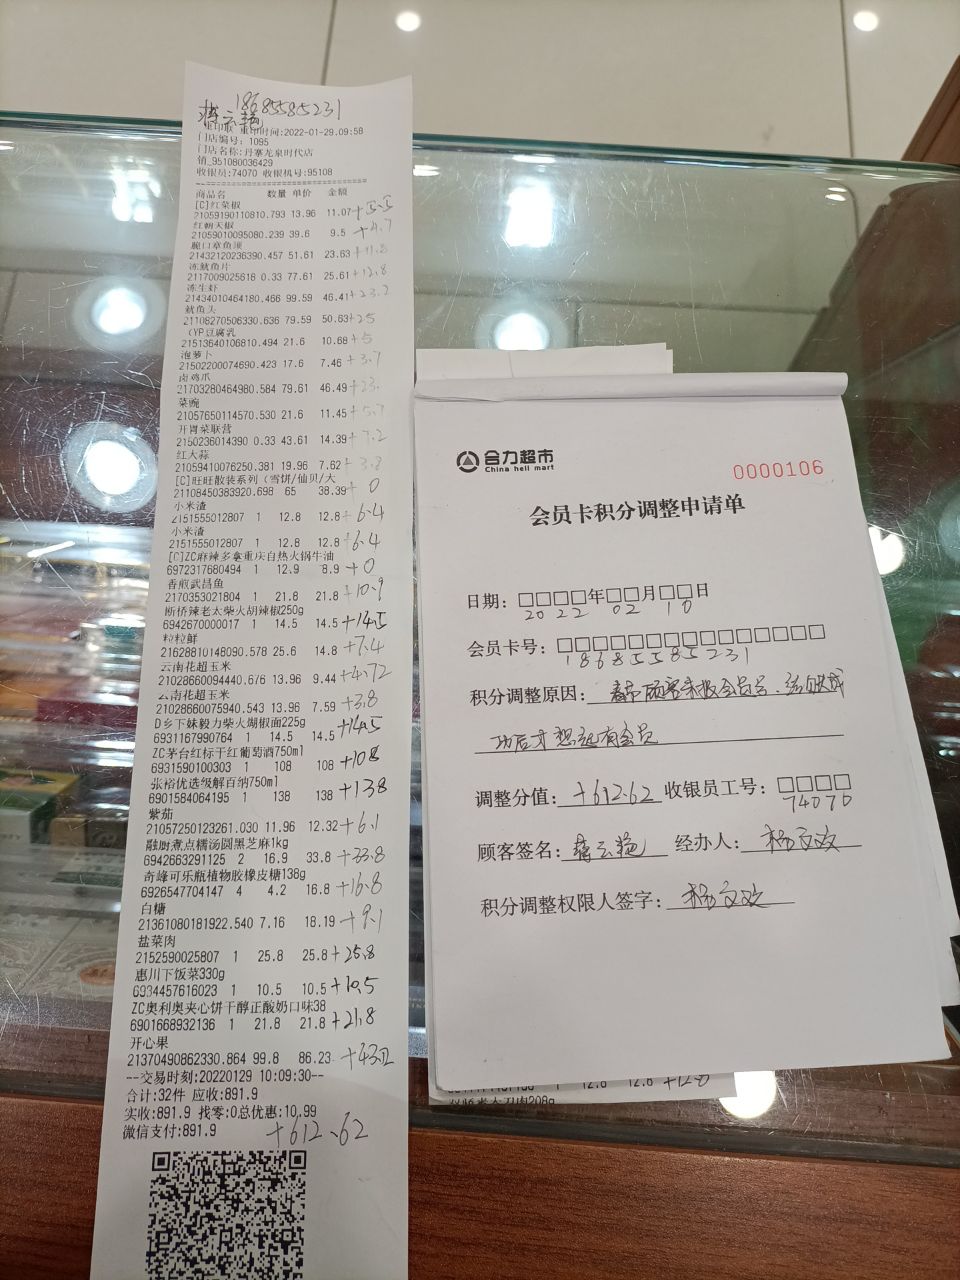 18685585231
蒋云艳
重印联 重印时间:2022-01-29,09:58
门店编号: 1095
门店名称:丹寨龙泉时代店
销_951080036429
收银员:74070 收银机号:95108
商品名 数量 单价 金额
[C]红菜椒
21059190110810.793 13.96 11.07 +5.5
红朝天椒
21059010095080.239 39.6 9.5 +4.7
脆口章鱼须
21432120236390.457 51.61 23.63 +11.8
冻鱿鱼片
2117009025618 0.33 77.61 25.61 +12.8
冻生虾
21434010464180.466 99.59 46.41 +23.2
鱿鱼头
21108270506330.636 79.59 50.63 +25
(YP豆腐乳
21513640106810.494 21.6 10.68 +5
泡萝卜
21502200074690.423 17.6 7.46 +3.7
卤鸡爪
21703280464980.584 79.61 46.49 +23.
菜豌
21057650114570.530 21.6 11.45 +5.7
开胃菜联营
2150236014390 0.33 43.61 14.39 +7.2
红大蒜
21059410076250.381 19.96 7.62 +3.8
[C]旺旺散装系列（雪饼/仙贝/大
21108450383920.698 65 38.39 +0
小米渣
2151555012807 1 12.8 12.8 +6.4
小米渣
2151555012807 1 12.8 12.8 +6.4
[C]ZC麻辣多拿重庆自热火锅牛油
6972317680494 1 12.9 8.9 +0
香煎武昌鱼
2170353021804 1 21.8 21.8 +10.9
断桥辣老太柴火胡辣椒250g
6942670000017 1 14.5 14.5 +14.5
粒粒鲜
21628810148090.578 25.6 14.8 +7.4
云南花超玉米
21028660094440.676 13.96 9.44 +4.72
云南花超玉米
21028660075940.543 13.96 7.59 +3.8
D乡下妹毅力柴火煳椒面225g
6931167990764 1 14.5 14.5 +14.5
ZC茅台红标干红葡萄酒750ml
6931590100303 1 108 108 +108
张裕优选级解百纳750ml
6901584064195 1 138 138 +138
紫茄
21057250123261.030 11.96 12.32 +6.1
融厨煮点糯汤圆黑芝麻1kg
6942663291125 2 16.9 33.8 +33.8
奇峰可乐瓶植物胶橡皮糖138g
6926547704147 4 4.2 16.8 +16.8
白糖
21361080181922.540 7.16 18.19 +9.1
盐菜肉
2152590025807 1 25.8 25.8 +25.8
惠川下饭菜330g
6934457616023 1 10.5 10.5 +10.5
ZC奥利奥夹心饼干醇正酸奶口味38
6901668932136 1 21.8 21.8 +21.8
开心果
21370490862330.864 99.8 86.23 +43.12
--交易时刻:20220129 10:09:30--
合计:32件 应收:891.9
实收:891.9 找零:0总优惠:10.99
微信支付:891.9
+612.62
合力超市
China heli mart
0000106
会员卡积分调整申请单
日期：2022年02月10日
会员卡号：18685585231
积分调整原因：春节顾客未报会员号，结账成
功后才想起有会员
调整分值：+612.62 收银员工号：74070
顾客签名：蒋云艳 经办人：杨文欢
积分调整权限人签字：杨文欢
12.8 12.8 +12.8
208g